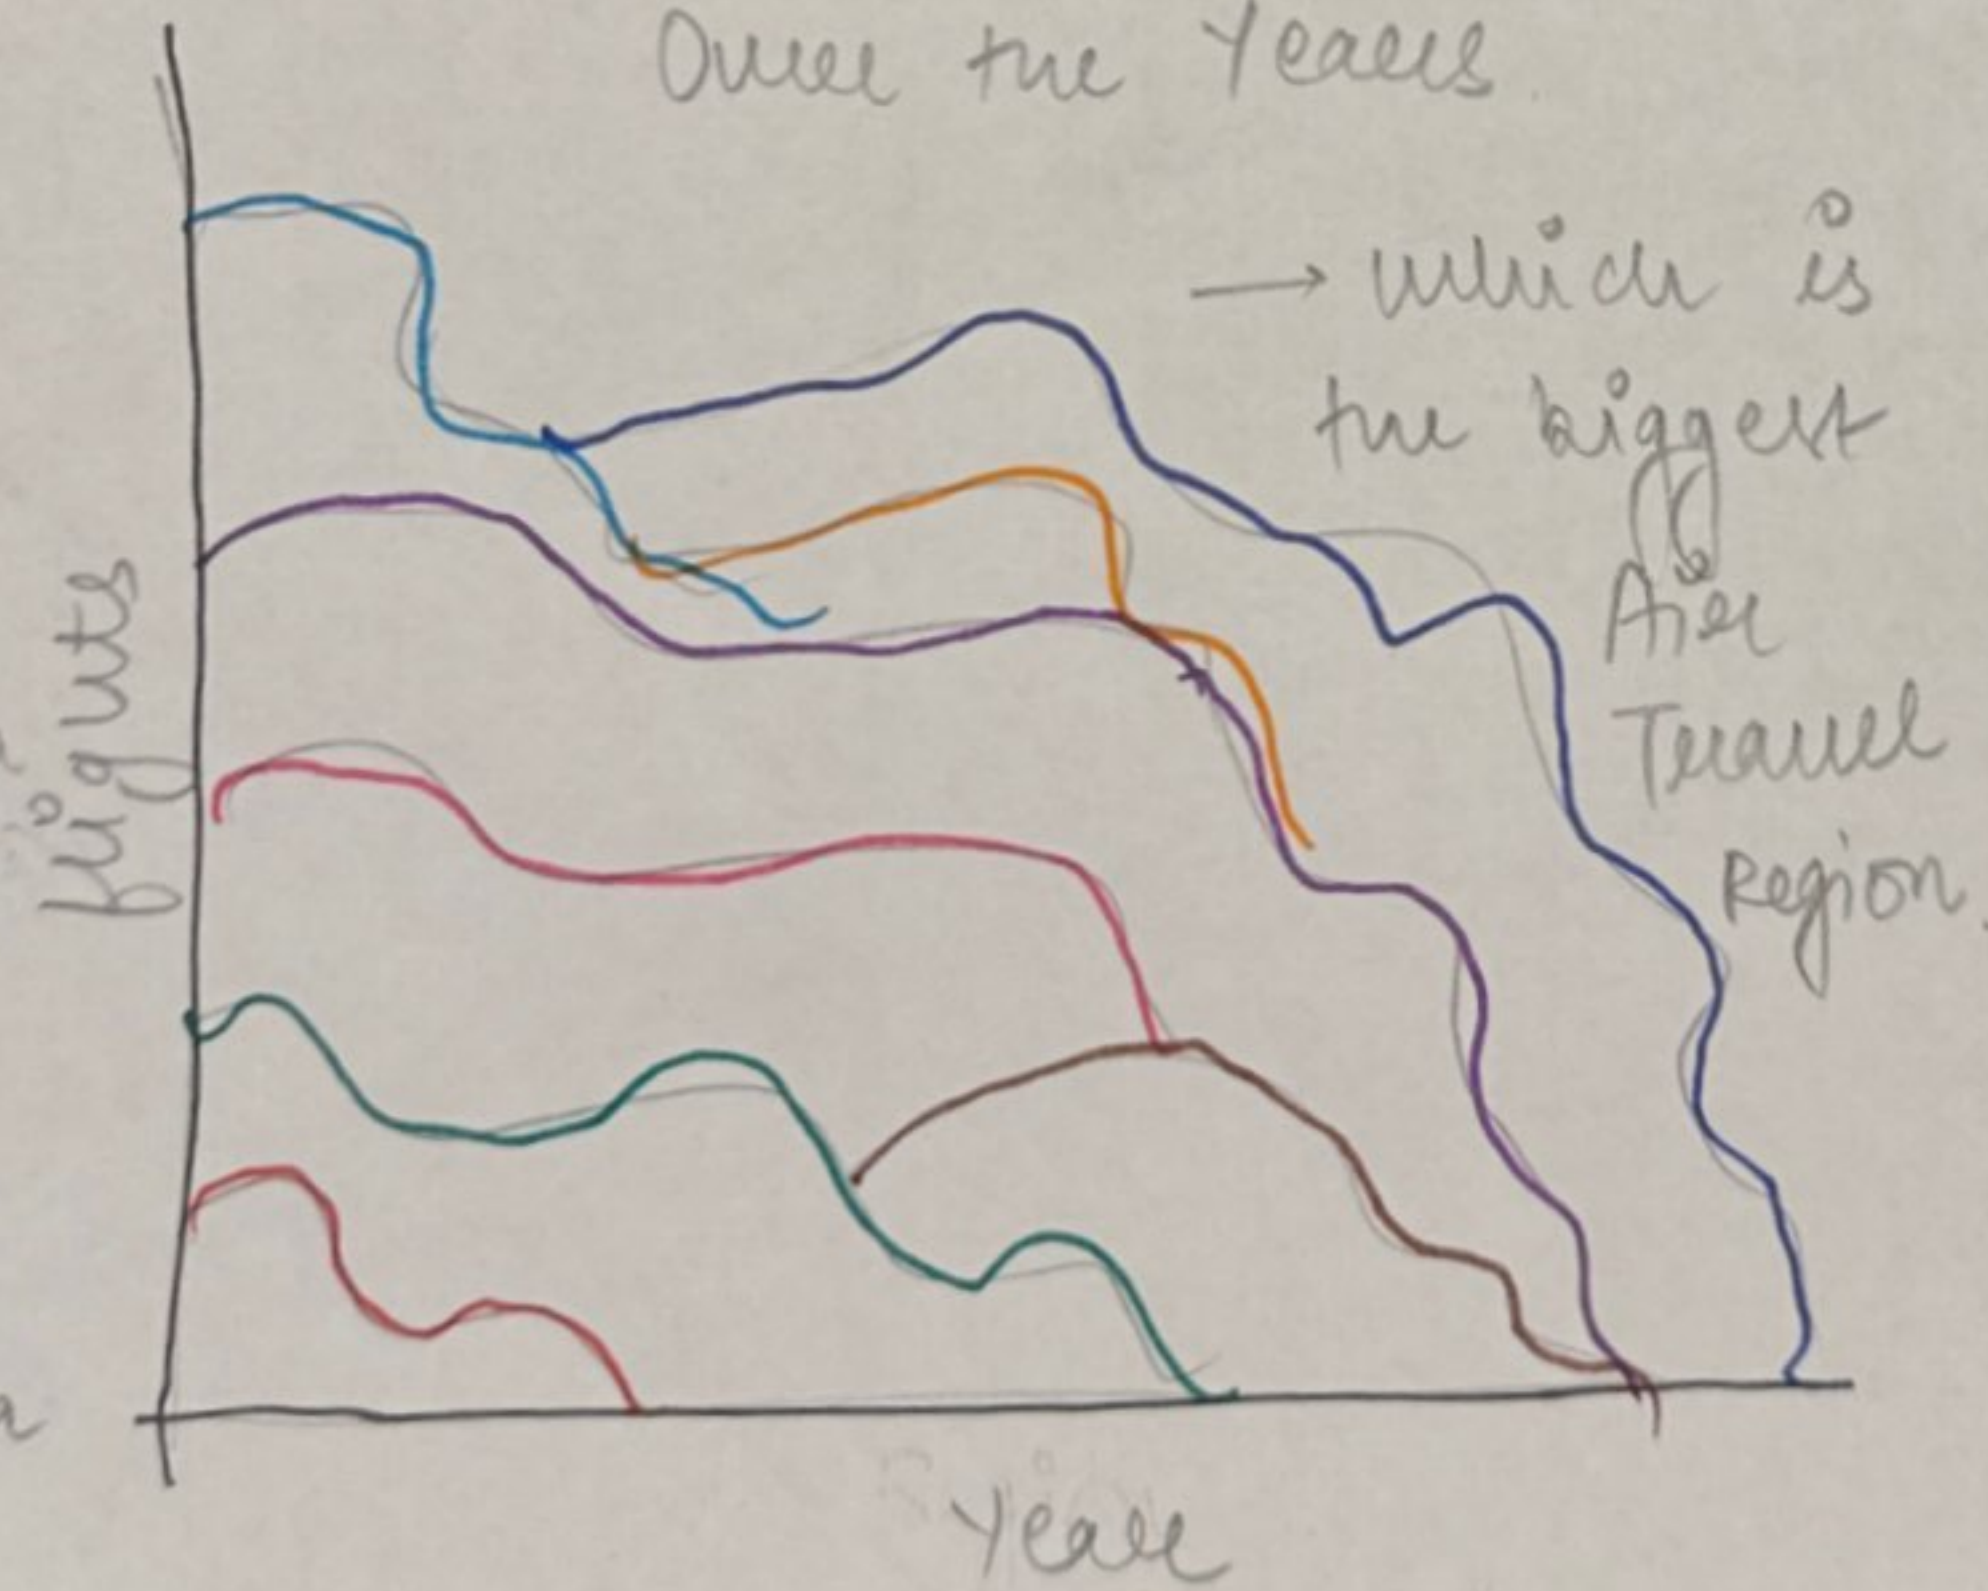 Over the Years
→ which is
the biggest
Air
Travel
Region.
flights
Year